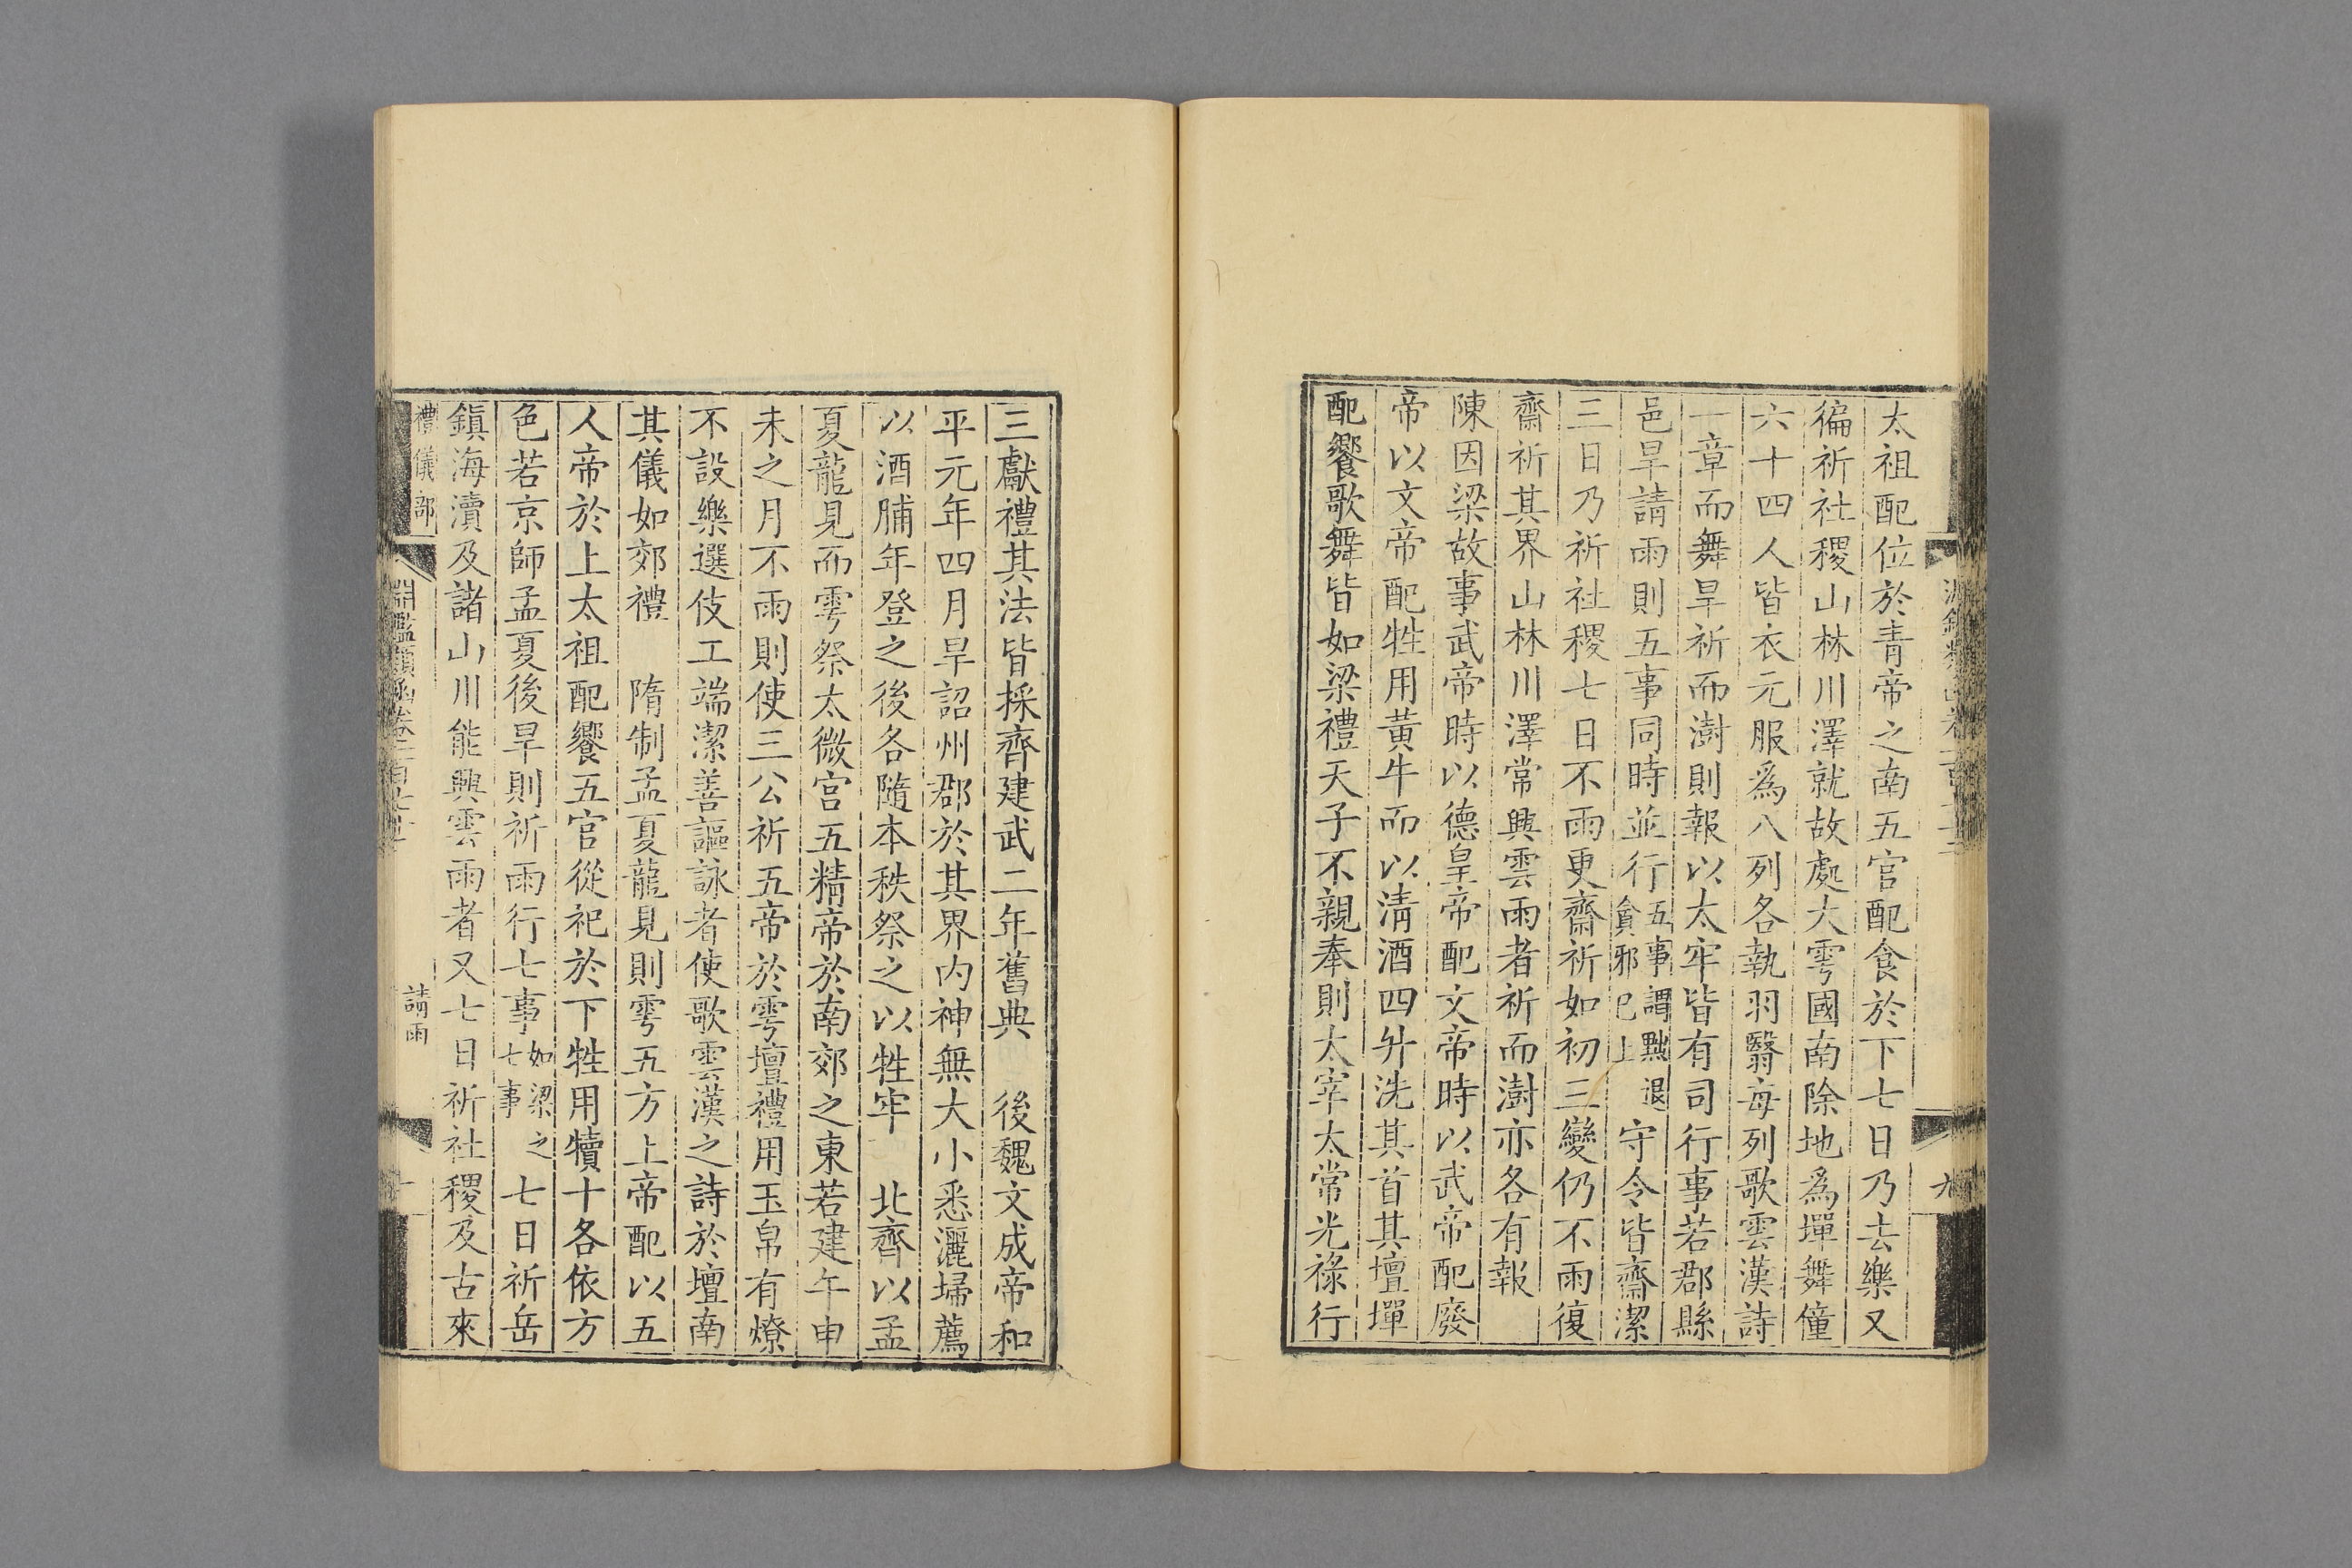 太祖配位於青帝之南五官配食於下七日乃去樂又
徧祈社稷山林川澤就故處大雩國南除地爲墠舞僮
六十四人皆衣元服爲八列各執羽翳每列歌雲漢詩
一章而舞旱祈而澍則報以太牢皆有司行事若郡縣
邑旱請雨則五事同時並行五事謂黜退貪邪巳上守令皆齋潔
三日乃祈社稷七日不雨更齋祈如初三變仍不雨復
齋祈其界山林川澤常興雲雨者祈而澍亦各有報
陳因梁故事武帝時以德皇帝配文帝時以武帝配廢
帝以文帝配牲用黃牛而以清酒四升洗其首其壇墠
配饗歌舞皆如梁禮天子不親奉則太宰太常光祿行
九
三獻禮其法皆採齊建武二年舊典　後魏文成帝和
平元年四月旱詔州郡於其界內神無大小悉灑埽薦
以酒脯年登之後各隨本秩祭之以牲牢　北齊以孟
夏龍見而雩祭太微宮五精帝於南郊之東若建午申
未之月不雨則使三公祈五帝於雩壇禮用玉帛有燎
不設樂選伎工端潔善謳詠者使歌雲漢之詩於壇南
其儀如郊禮　隋制孟夏龍見則雩五方上帝配以五
人帝於上太祖配饗五官從祀於下牲用犢十各依方
色若京師孟夏後旱則祈雨行七事如梁之七事七日祈岳
鎮海瀆及諸山川能興雲雨者又七日祈社稷及古來
禮儀部
淵鑑類函卷一百七十五
請雨